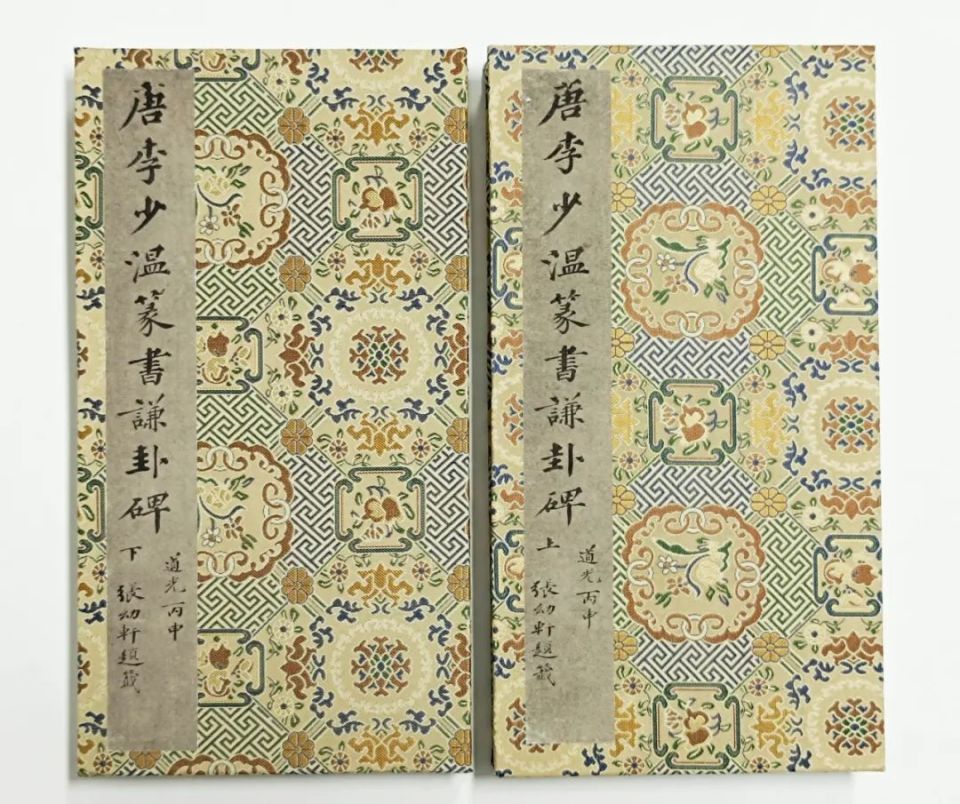 唐李少溫篆書謙卦碑 上
道光丙申
張幼軒題籤
唐李少溫篆書謙卦碑 下
道光丙申
張幼軒題籤